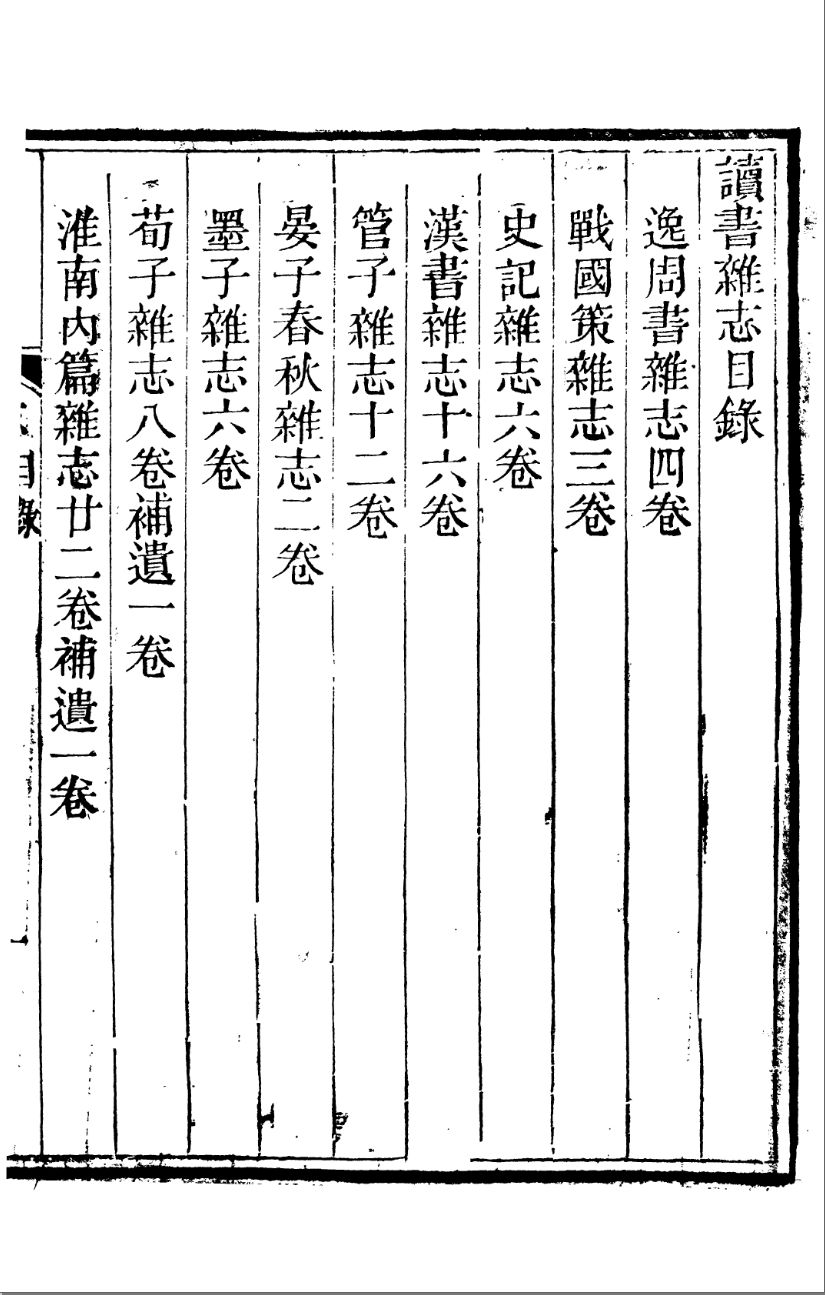 讀書雜志目錄
逸周書雜志四卷
戰國策雜志三卷
史記雜志六卷
漢書雜志十六卷
管子雜志十二卷
晏子春秋雜志二卷
墨子雜志六卷
荀子雜志八卷補遺一卷
淮南内篇雜志廿二卷補遺一卷
目錄